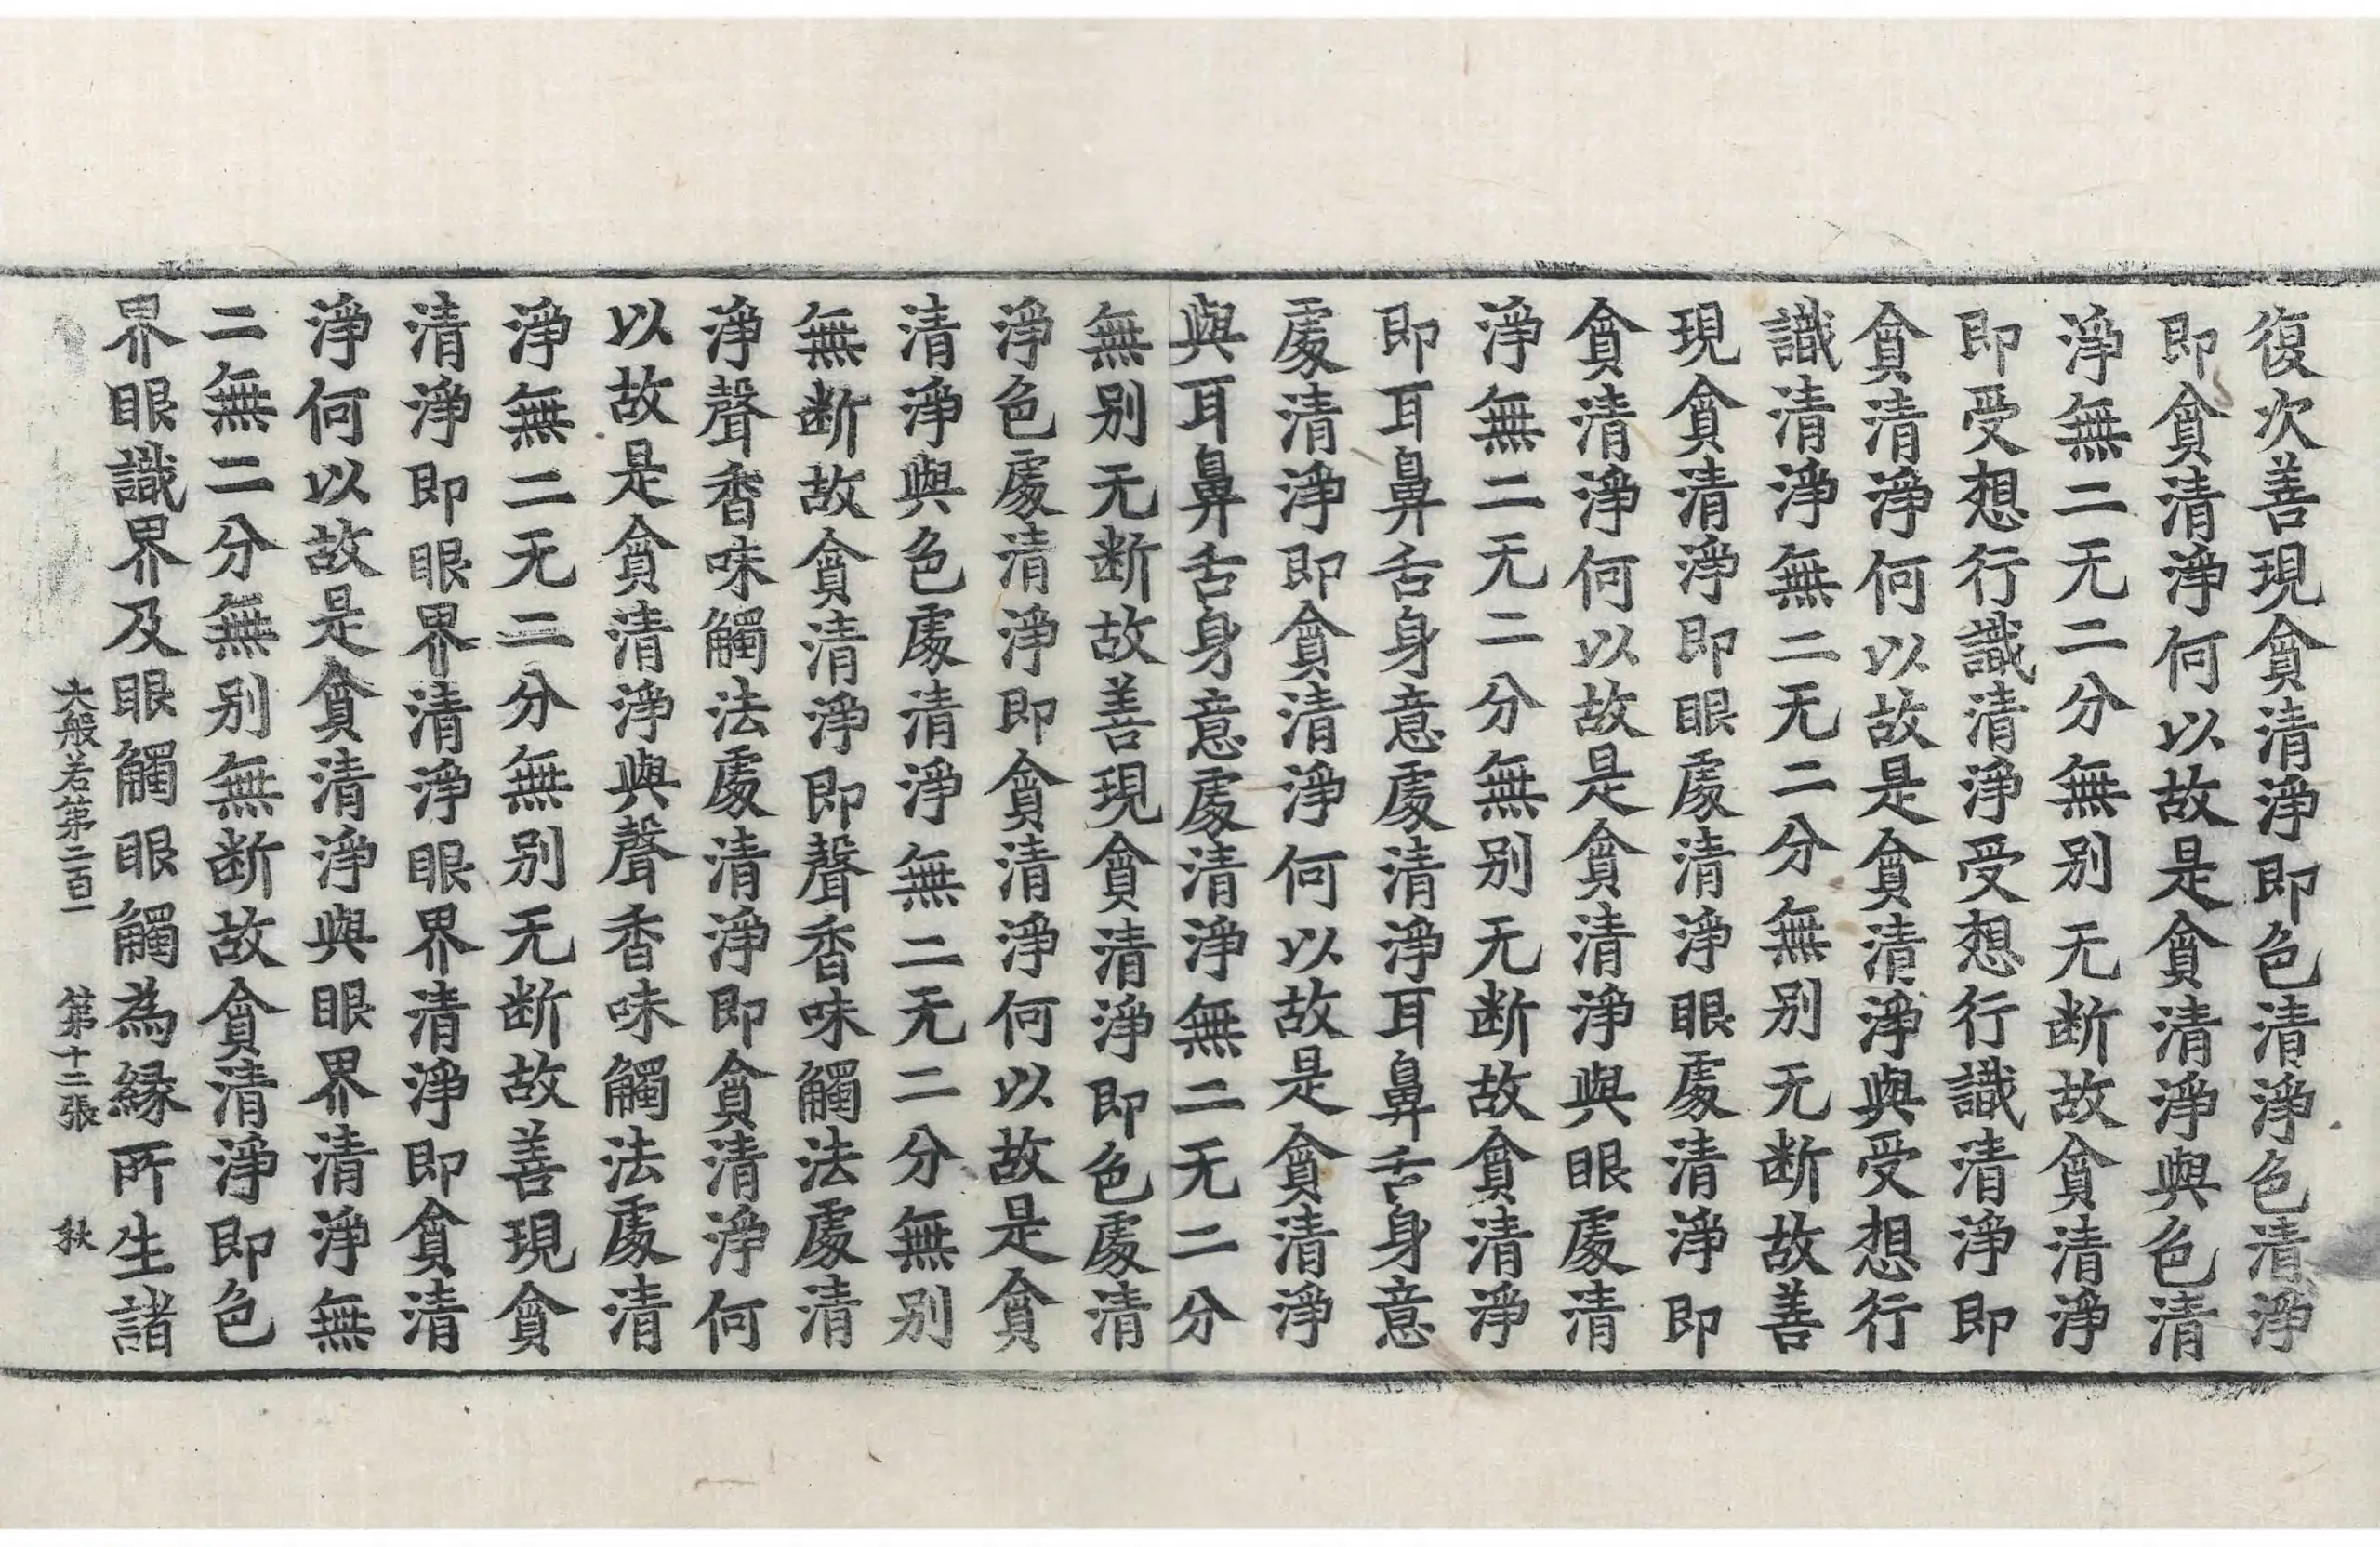 復次善現貪清淨即色清淨色清淨
即貪清淨何以故是貪清淨與色清
淨無二无二分無别无断故貪清淨
即受想行識清淨受想行識清淨即
貪清淨何以故是貪清淨與受想行
識清淨無二无二分無别无断故善
現貪清淨即眼處清淨眼處清淨即
貪清淨何以故是貪清淨與眼處清
淨無二无二分無别无断故貪清淨
即耳鼻舌身意處清淨耳鼻舌身意
處清淨即貪清淨何以故是貪清淨
與耳鼻舌身意處清淨無二无二分
無别无断故善現貪清淨即色處清
淨色處清淨即貪清淨何以故是貪
清淨與色處清淨無二无二分無别
無断故貪清淨即聲香味觸法處清
淨聲香味觸法處清淨即貪清淨何
以故是貪清淨與聲香味觸法處清
淨無二无二分無别无断故善現貪
清淨即眼界清淨眼界清淨即貪清
淨何以故是貪清淨與眼界清淨無
二無二分無别無断故貪清淨即色
界眼識界及眼觸眼觸為緣所生諸
大般若第二百一 第十二張 秋